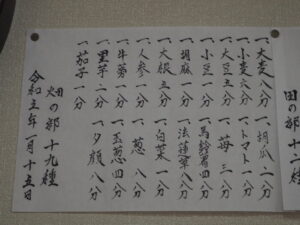 田の部 十二種
一、大麦 八分
一、胡瓜 二分
一、小麦 六分
一、トマト 一分
一、大豆 五分
一、苺 三分
一、小豆 一分
一、馬鈴薯 四分
一、胡麻 一分
一、法蓮草 八分
一、大根 五分
一、白菜 一分
一、人参 一分
一、葱 八分
一、牛蒡 一分
一、玉葱 四分
一、里芋 二分
一、夕顔 八分
一、茄子 一分
畑の部 十九種
令和五年一月十五日